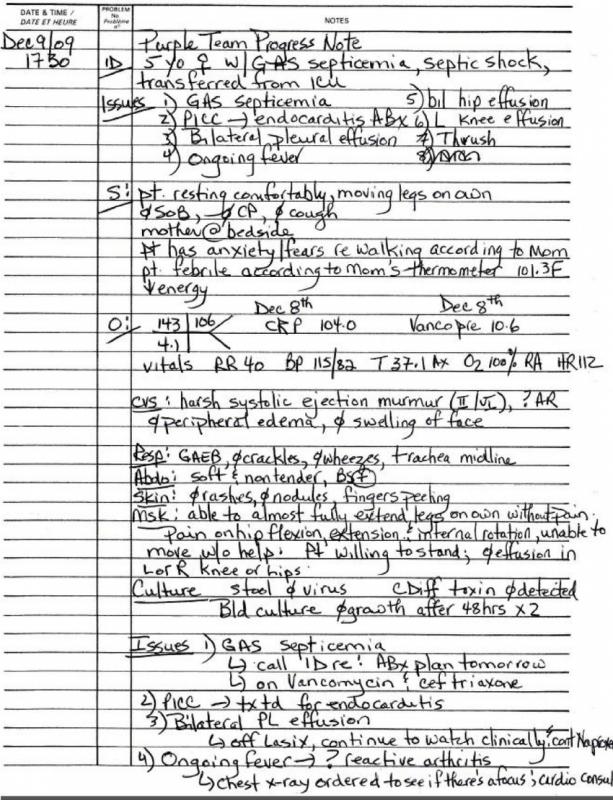 DATE & TIME / PROBLEM NOTES
DATE ET HEURE No. Problème n°
Dec 9/09 Purple Team Progress Note
1730 ID 5 y/o ♀ w/ GAS septicemia, septic shock,
transferred from ICU
Issues 1) GAS septicemia 5) bil hip effusion
2) PICC → endocarditis ABx 6) L Knee effusion
3) Bilateral pleural effusion 7) Thrush
4) Ongoing fever 8)
S: pt. resting comfortably, moving legs on own
∅ SOB, ∅ CP, ∅ cough
mother @ bedside
pt has anxiety/fears re walking according to Mom
pt. febrile according to Mom's thermometer 101.3F
↓ energy
Dec 8th Dec 8th
O: 143 | 106 CRP 104.0 Vanco pre 10.6
4.1
vitals RR 40 BP 115/82 T 37.1 Ax O2 100% RA HR 112
CVS: harsh systolic ejection murmur (II/VI), ? AR
∅ peripheral edema, ∅ swelling of face
Resp: GAEB, ∅ crackles, ∅ wheezes, trachea midline
Abdo: soft & nontender, BS⊕
Skin: ∅ rashes, ∅ nodules, fingers peeling
MSK: able to almost fully extend legs on own without pain.
Pain on hip flexion, extension & internal rotation, unable to
move w/o help. Pt willing to stand; ∅ effusion in
L or R knee or hips.
Culture stool ∅ virus CDiff toxin ∅ detected
Bld culture ∅ growth after 48hrs x2
Issues 1) GAS septicemia
↳ call ID re: ABx plan tomorrow
↳ on Vancomycin & ceftriaxone
2) PICC → txtd for endocarditis
3) Bilateral PL effusion
↳ off Lasix, continue to watch clinically & cont Naproxe
4) Ongoing fever → ? reactive arthritis
↳ chest x-ray ordered to see if there's a focus; cardio consul